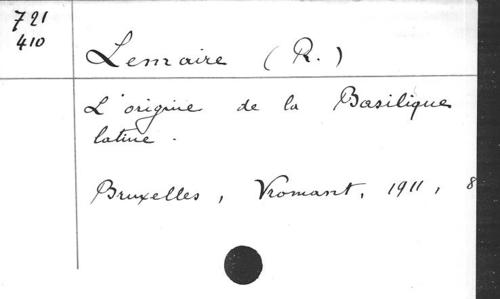 721
410
Lemaire (R.)
L'origine de la Basilique
latine.
Bruxelles, Vromant, 1911, 8